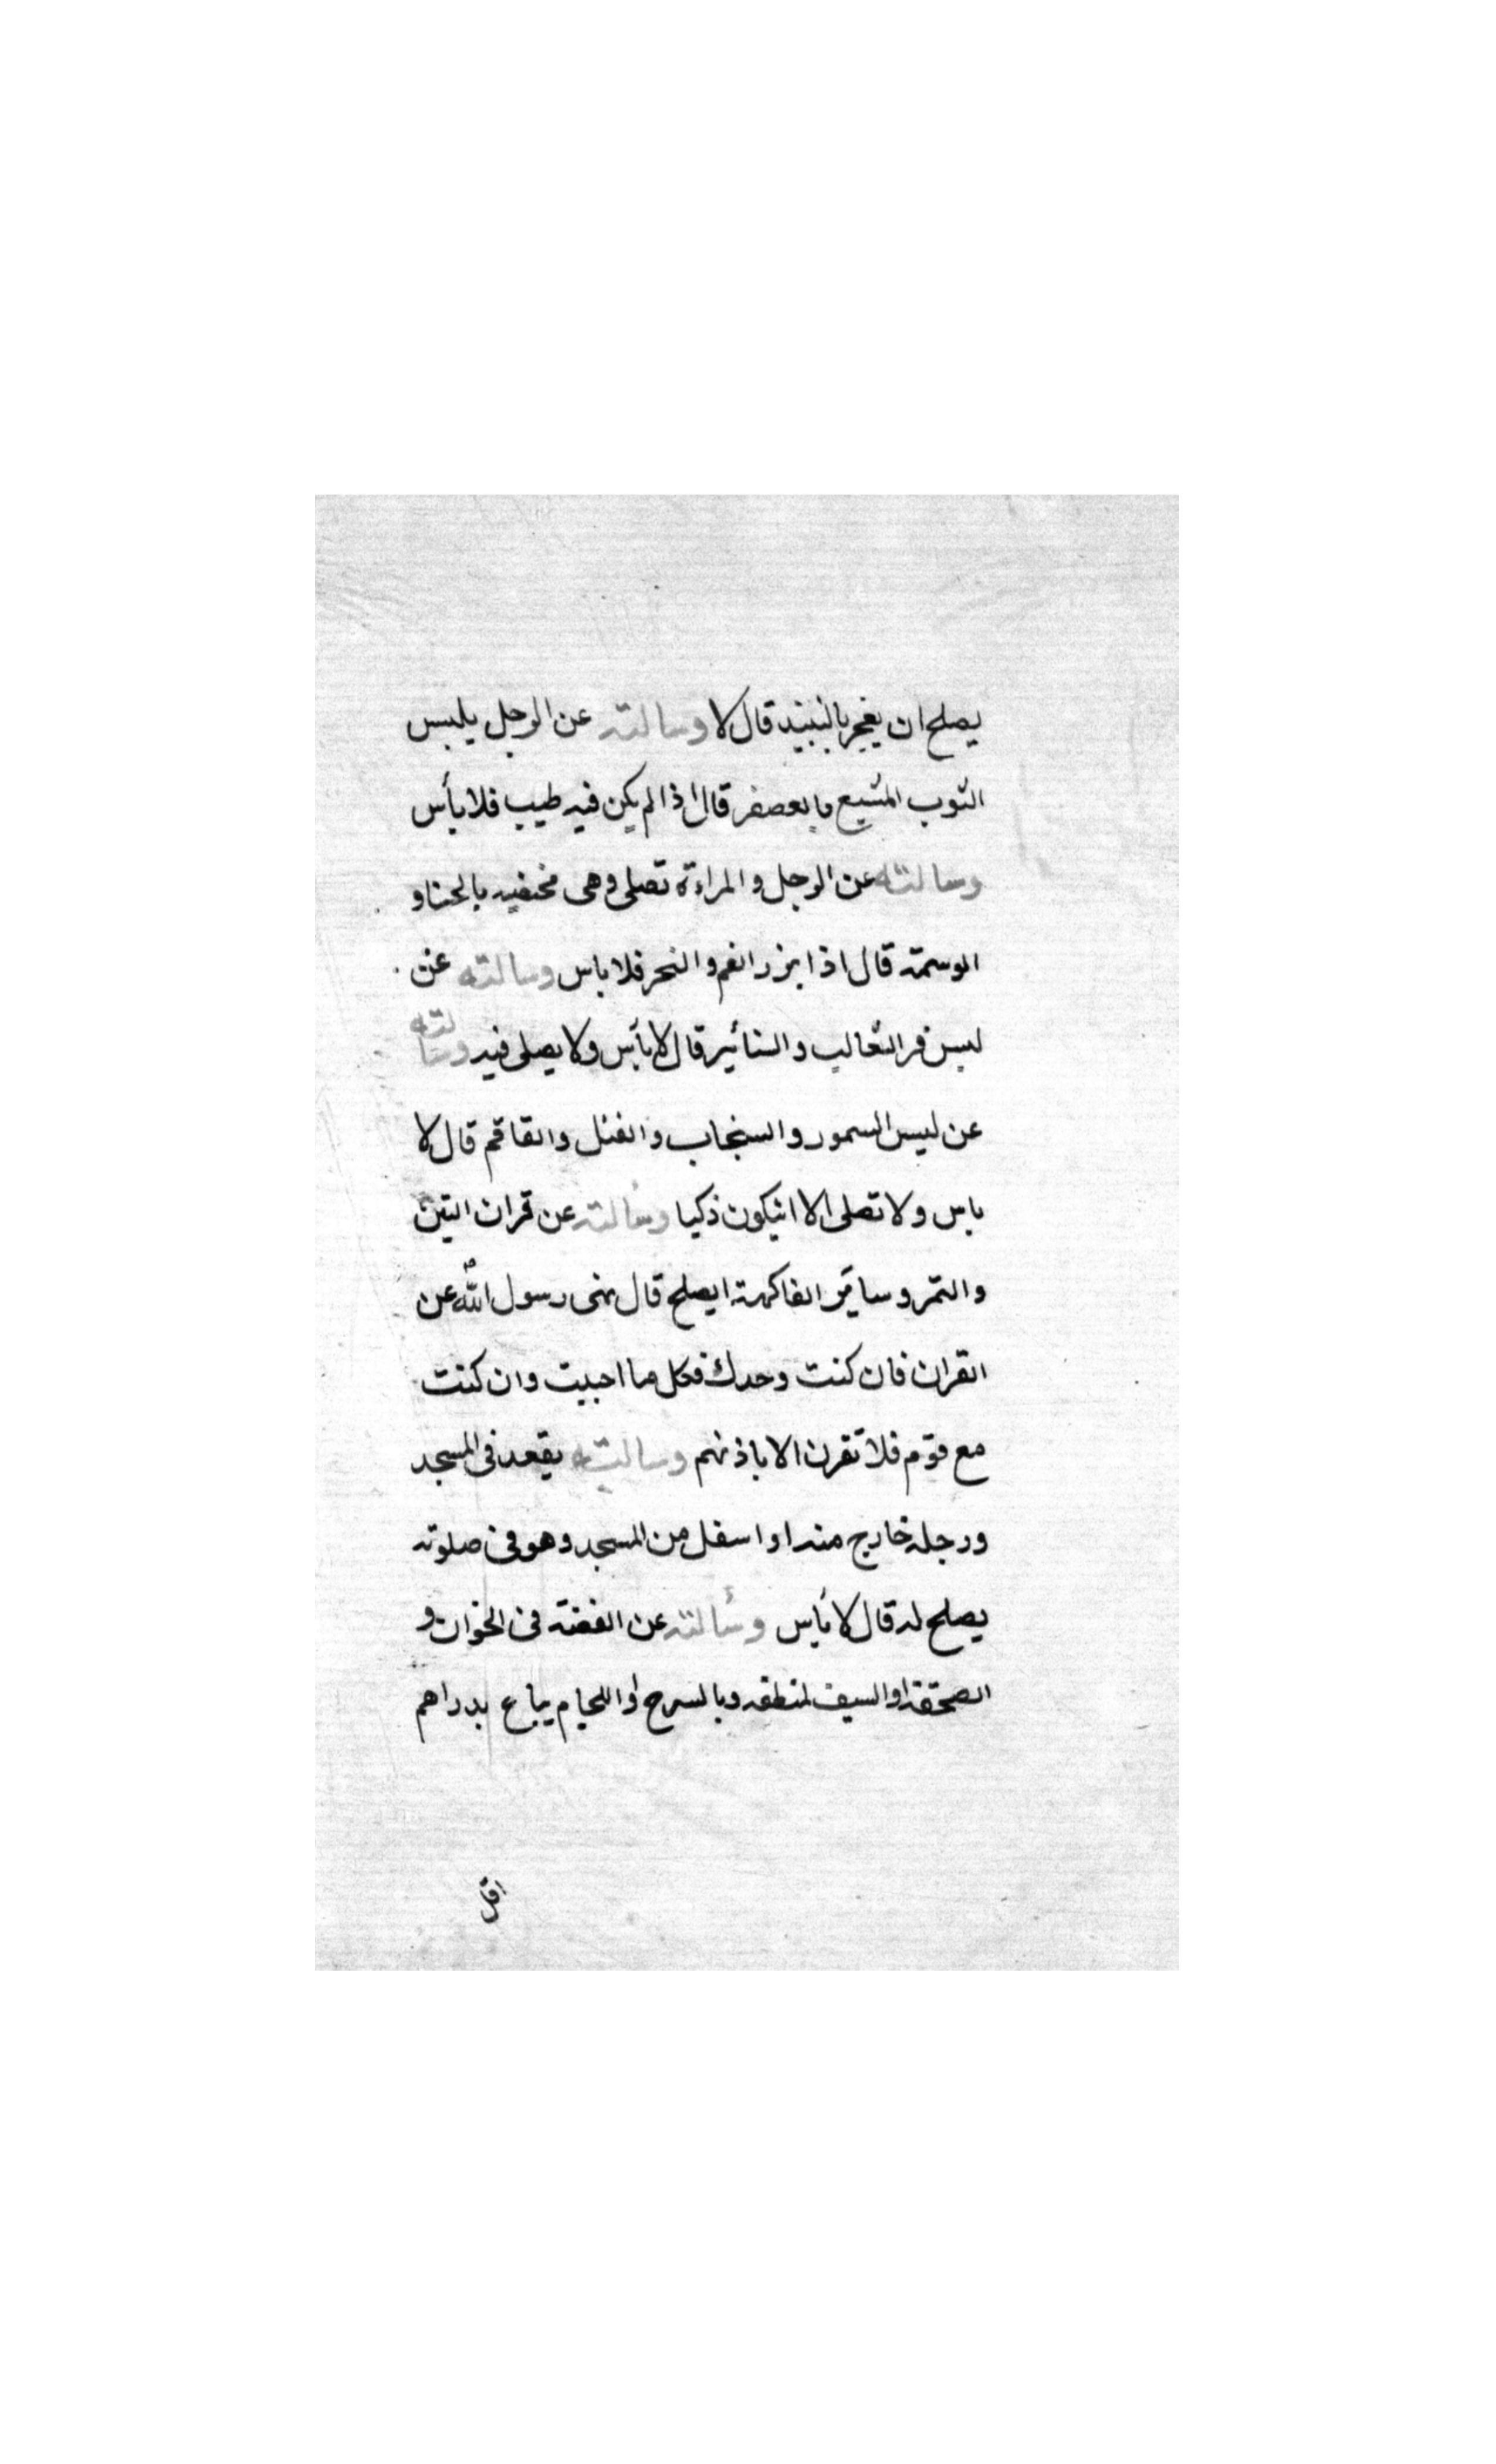 يصلح ان يعجن بالنبيذ قال لا وسالته عن الرجل يلبس
الثوب المشبع بالعصفر قال اذا لم يكن فيه طيب فلا بأس
وسالته عن الرجل والمراءة تصلى وهى مختضبه بالحنا و
الوسمة قال اذا برز الفم والنحر فلا باس وسالته عن
لبس فر الثعالب والسنأنير قال لا بأس ولا يصلى فيه وسالته
عن لبس السمور والسنجاب والفنل والقاقم قال لا
باس ولا تصلى الا انيكون ذكيا وسألته عن قران التين
والتمر وساير الفاكهة ايصلح قال نهى رسول الله ص عن
القران فان كنت وحدك فكل ما احببت وان كنت
مع قوم فلا تقرن الا باذنهم وسالته يقعد فى المسجد
ورجله خارج منه او اسفل من المسجد وهو فى صلوته
يصلح له قال لا بأس وسألته عن الفضة فى الخوان و
الصحفة او السيف لمنطقه وبالسرج او اللجام يباع بدراهم
اقل